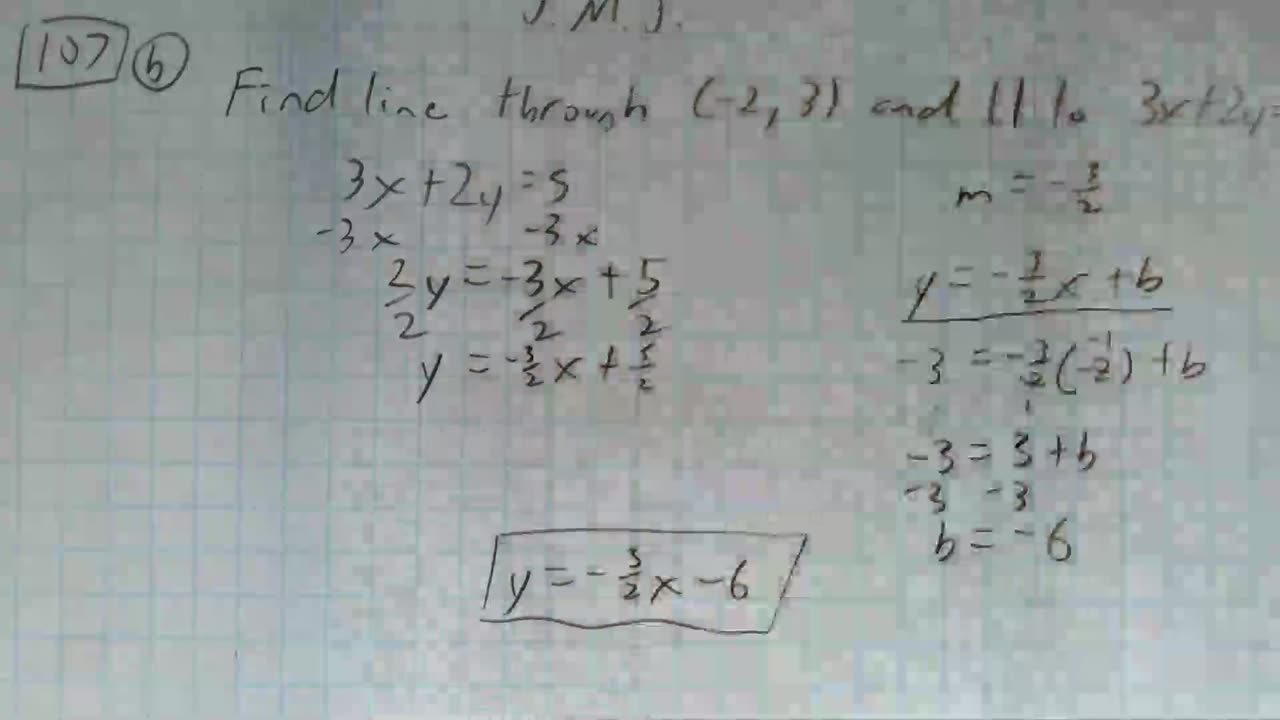 J.M.J.
107 b Find line through (-2, 3) and || to 3x+2y=
3x+2y=5
-3x -3x
2/2 y = -3x/2 + 5/2
y = -3/2 x + 5/2
m = -3/2
y = -3/2 x + b
-3 = -3/2 (-2) + b
-3 = 3 + b
-3 -3
b = -6
y = -3/2 x - 6